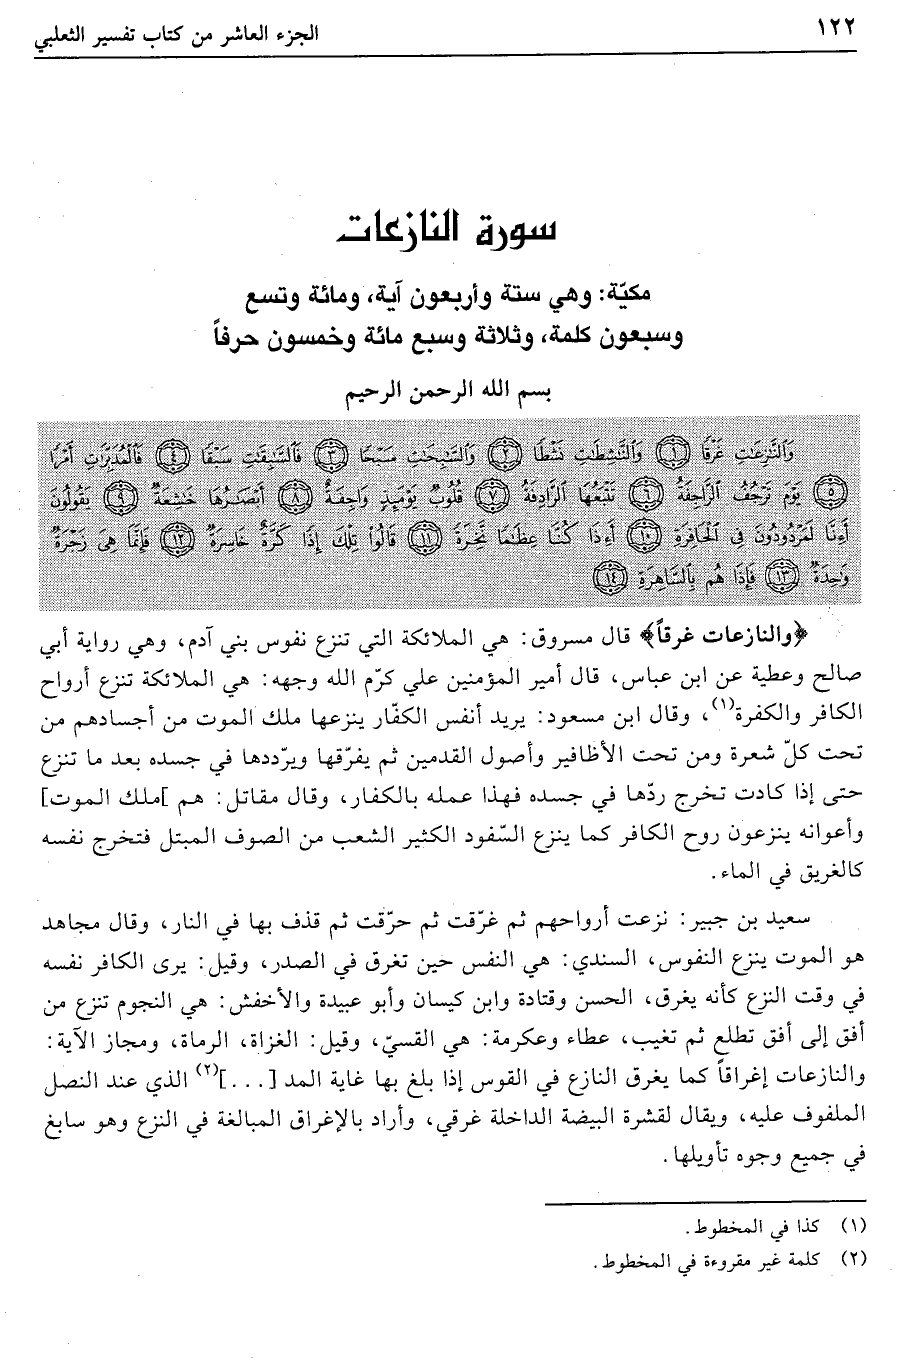 ١٢٢ الجزء العاشر من كتاب تفسير الثعلبي
سورة النازعات
مكيّة: وهي ستة وأربعون آية، ومائة وتسع
وسبعون كلمة، وثلاثة وسبع مائة وخمسون حرفاً
بسم الله الرحمن الرحيم
وَالنَّٰزِعَٰتِ غَرْقًا ﴿١﴾ وَالنَّٰشِطَٰتِ نَشْطًا ﴿٢﴾ وَالسَّٰبِحَٰتِ سَبْحًا ﴿٣﴾ فَالسَّٰبِقَٰتِ سَبْقًا ﴿٤﴾ فَالْمُدَبِّرَٰتِ أَمْرًا
﴿٥﴾ يَوْمَ تَرْجُفُ الرَّاجِفَةُ ﴿٦﴾ تَتْبَعُهَا الرَّادِفَةُ ﴿٧﴾ قُلُوبٌ يَوْمَئِذٍ وَاجِفَةٌ ﴿٨﴾ أَبْصَٰرُهَا خَٰشِعَةٌ ﴿٩﴾ يَقُولُونَ
أَءِنَّا لَمَرْدُودُونَ فِى الْحَافِرَةِ ﴿١٠﴾ أَءِذَا كُنَّا عِظَٰمًا نَّخِرَةً ﴿١١﴾ قَالُوا۟ تِلْكَ إِذًا كَرَّةٌ خَاسِرَةٌ ﴿١٢﴾ فَإِنَّمَا هِىَ زَجْرَةٌ
وَٰحِدَةٌ ﴿١٣﴾ فَإِذَا هُم بِالسَّاهِرَةِ ﴿١٤﴾
﴿والنازعات غرقاً﴾ قال مسروق: هي الملائكة التي تنزع نفوس بني آدم، وهي رواية أبي
صالح وعطية عن ابن عباس، قال أمير المؤمنين علي كرّم الله وجهه: هي الملائكة تنزع أرواح
الكافر والكفرة(١)، وقال ابن مسعود: يريد أنفس الكفّار ينزعها ملك الموت من أجسادهم من
تحت كلّ شعرة ومن تحت الأظافير وأصول القدمين ثم يفرّقها ويرّددها في جسده بعد ما تنزع
حتى إذا كادت تخرج ردّها في جسده فهذا عمله بالكفار، وقال مقاتل: هم [ملك الموت]
وأعوانه ينزعون روح الكافر كما ينزع السّفود الكثير الشعب من الصوف المبتل فتخرج نفسه
كالغريق في الماء.
سعيد بن جبير: نزعت أرواحهم ثم غرّقت ثم حرّقت ثم قذف بها في النار، وقال مجاهد
هو الموت ينزع النفوس، السندي: هي النفس حين تغرق في الصدر، وقيل: يرى الكافر نفسه
في وقت النزع كأنه يغرق، الحسن وقتادة وابن كيسان وأبو عبيدة والأخفش: هي النجوم تنزع من
أفق إلى أفق تطلع ثم تغيب، عطاء وعكرمة: هي القسيّ، وقيل: الغزاة، الرماة، ومجاز الآية:
والنازعات إغراقاً كما يغرق النازع في القوس إذا بلغ بها غاية المد [...](٢) الذي عند النصل
الملفوف عليه، ويقال لقشرة البيضة الداخلة غرقي، وأراد بالإغراق المبالغة في النزع وهو سابغ
في جميع وجوه تأويلها.
(١) كذا في المخطوط.
(٢) كلمة غير مقروءة في المخطوط.